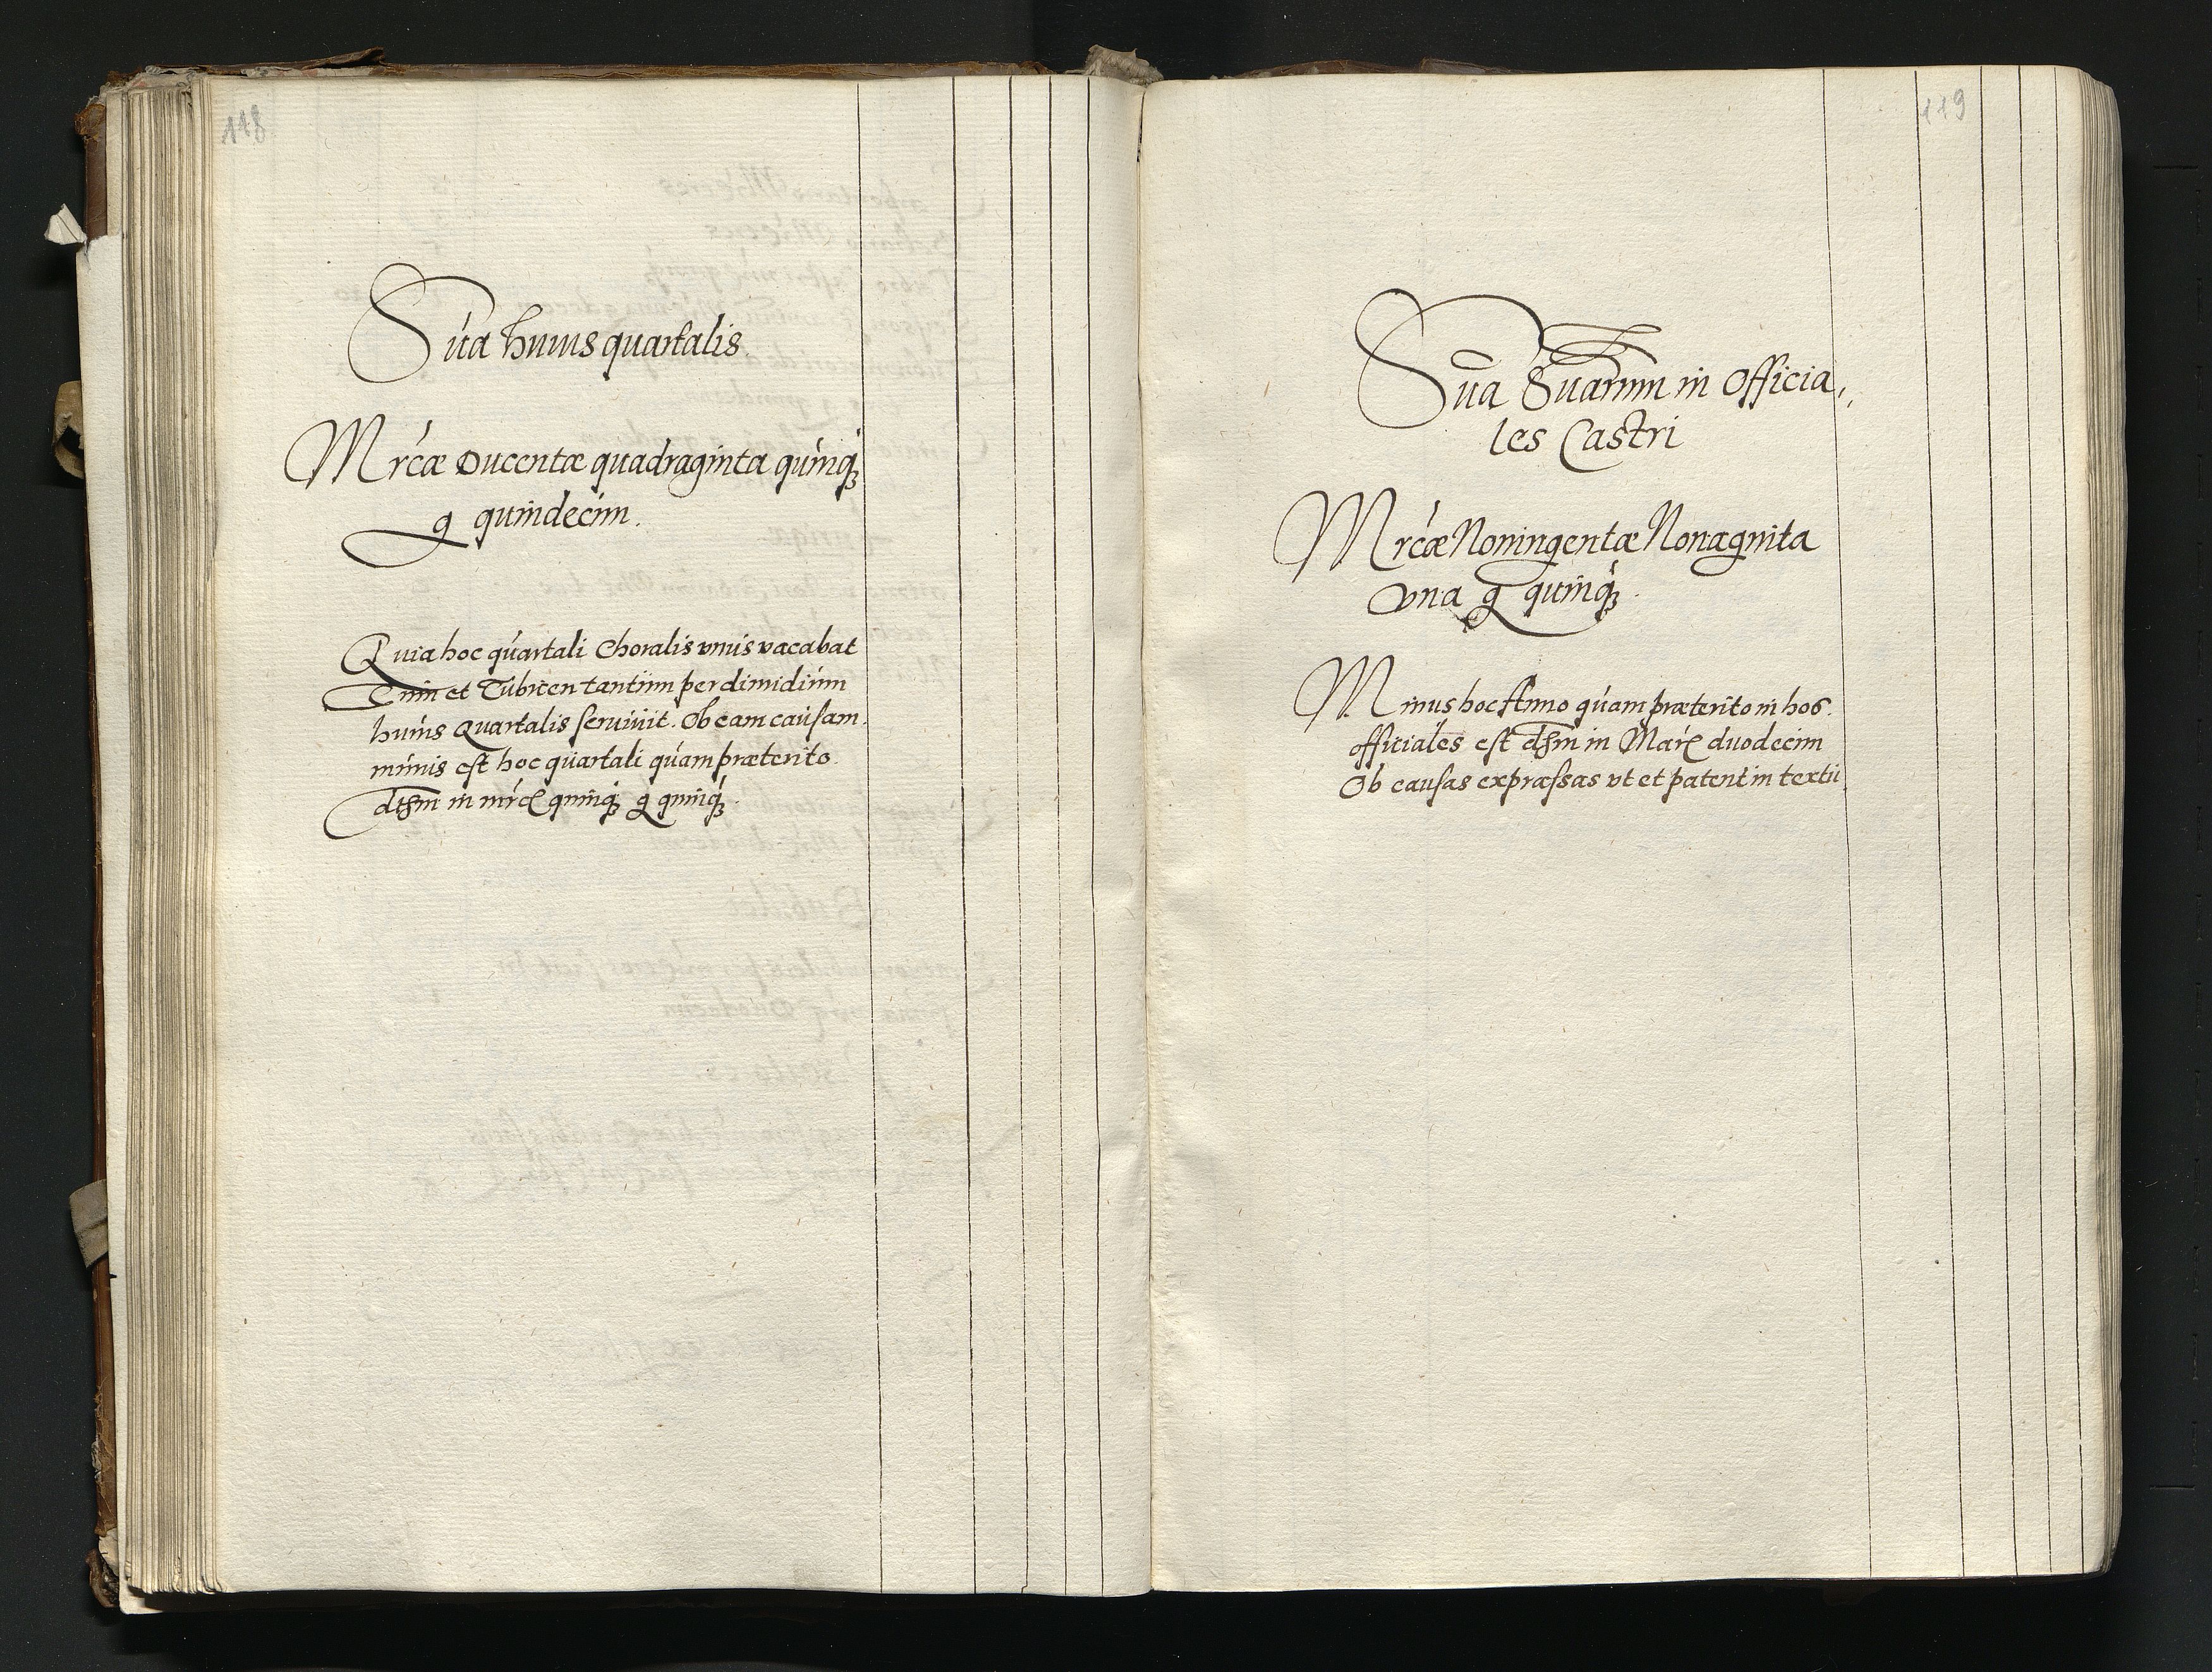 118
Sua huius quartalis.
Mrcæ Ducentæ quadraginta quinq
g quindecim.
Quia hoc quartali Choralis vnus vacabat
Tum et Tubicen tantum per dimidium
huius Quartalis seruiuit. Ob eam causam
minus est hoc quartali quam præterito
dtstm in mrc quinq g quinq.
119
Sua Suarum in Officia,,
les Castri
Mrcæ Noningentæ Nonaginta
vna g quinq.
Minus hoc Anno quam præterito in hos
officiales est dtstm in Marc duodecim
Ob causas expræssas vt et patent in textu